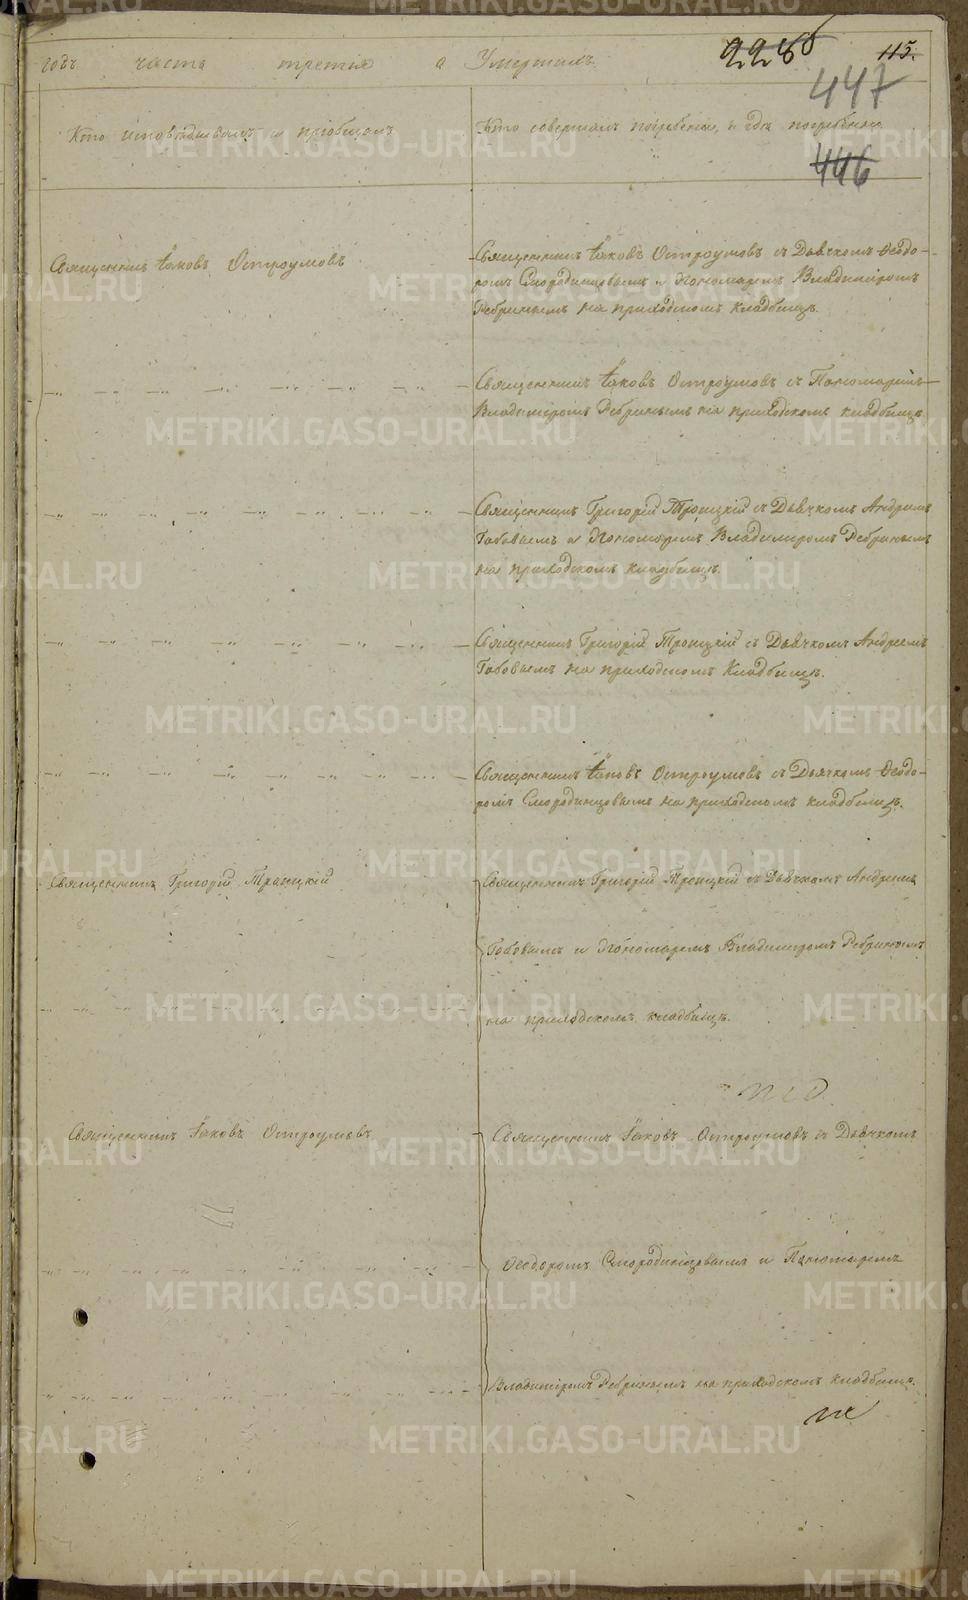 годъ часть третья о Умершихъ
228 об
115.
447
446
Кто исповѣдывалъ и пріобщалъ
Кто совершалъ погребеніе, и гдѣ погребены
Священникъ Іаковъ Остроумовъ
Священникъ Іаковъ Остроумовъ съ Дьячкомъ Ѳеодо-
ромъ Смородинцовымъ и Пономаремъ Владиміромъ
Ребринымъ на приходскомъ кладбищѣ.
Священникъ Іаковъ Остроумовъ съ Пономаремъ
Владиміромъ Ребринымъ на приходскомъ кладбищѣ
Священникъ Григорій Троицкій съ Дьячкомъ Андреемъ
и Пономаремъ Владиміромъ Ребринымъ
на приходскомъ кладбищѣ.
Священникъ Григорій Троицкій съ Дьячкомъ Андреемъ
на приходскомъ Кладбищѣ.
Священникъ Іаковъ Остроумовъ съ Дьячкомъ Ѳеодо-
ромъ Смородинцовымъ на приходскомъ кладбищѣ.
Священникъ Григорій Троицкій
Священникъ Григорій Троицкій съ Дьячкомъ Андреемъ
и Пономаремъ Владиміромъ Ребринымъ
на приходскомъ кладбищѣ.
Священникъ Іаковъ Остроумовъ
Священникъ Іаковъ Остроумовъ съ Дьячкомъ
Ѳеодоромъ Смородинцовымъ и Пономаремъ
Владиміромъ Ребринымъ на приходскомъ кладбищѣ.
METRIKI.GASO-URAL.RU